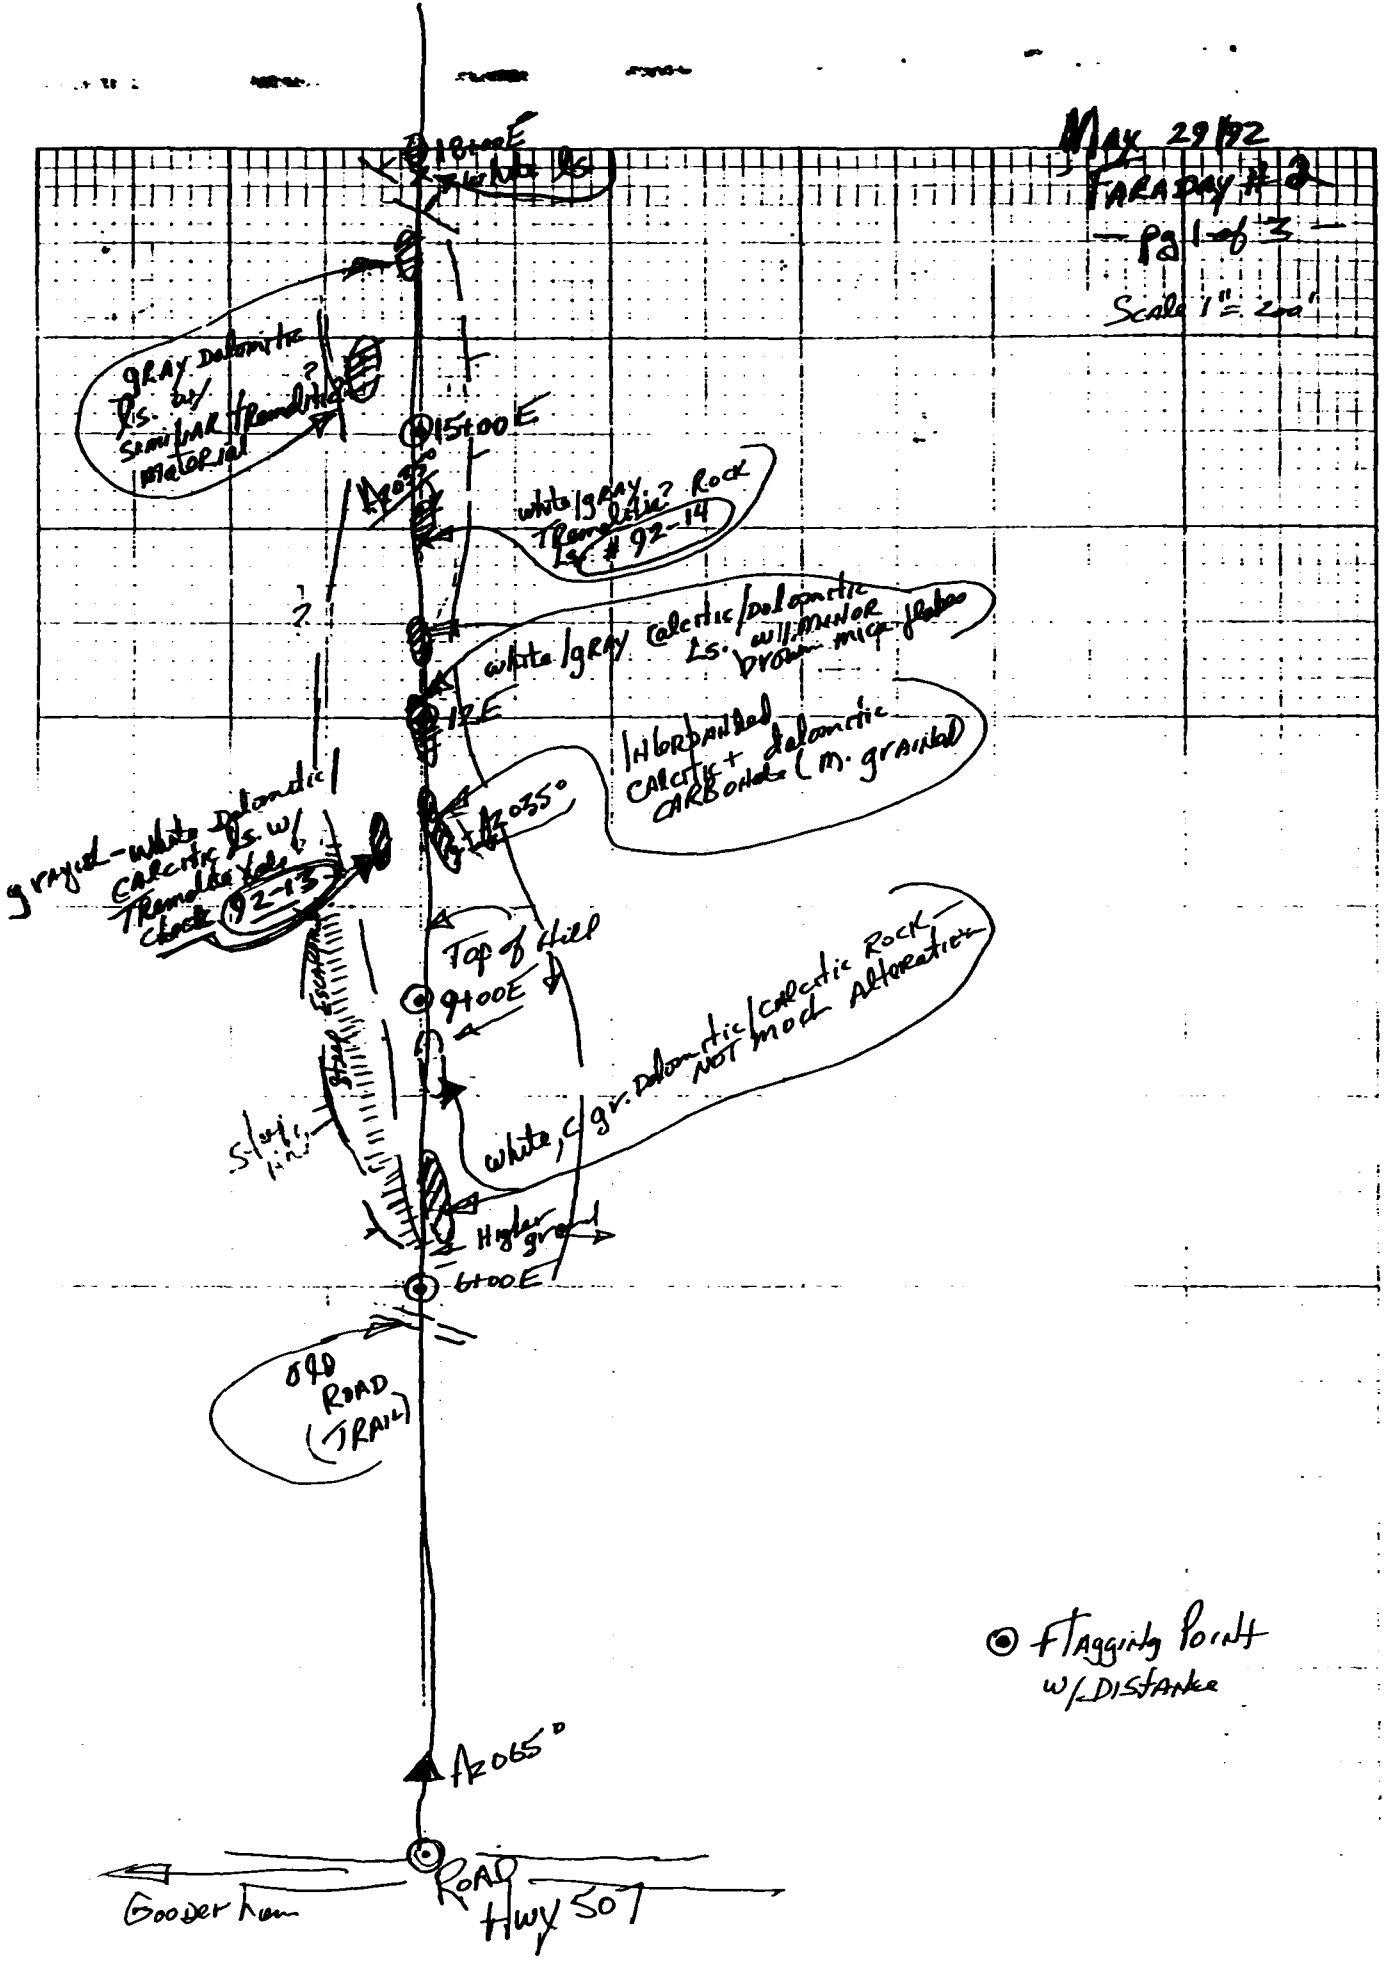 May 29/92
FARADAY # 2
- pg 1 of 3 -
Scale 1" = 200'
18+00E
white ls.
gRAY Dolomitic
ls. w/
similAR tremolitic?
material
15+00E
Az035°
white/gRAY
Tremolitic? Rock
Ls. # 92-14
?
white/gRAY Calcitic/Dolomitic
Ls. w/ MINOR
brown mica flakes
12E
Interbanded
CAlcitic + dolomitic
CARBONate (m. grained)
Az035°
grayish-white Dolomitic/
CAlcitic ls. w/
Tremolite
check 92-13
Top of Hill
9+00E
Steep Escarpment
white, c gr. Dolomitic/CAlcitic Rock -
NOT much Alteration
Higher
ground
6+00E
old
ROAD
(TRAIL)
Flagging Point
w/ DISTANce
Az065°
ROAD
Hwy 507
Gooderham